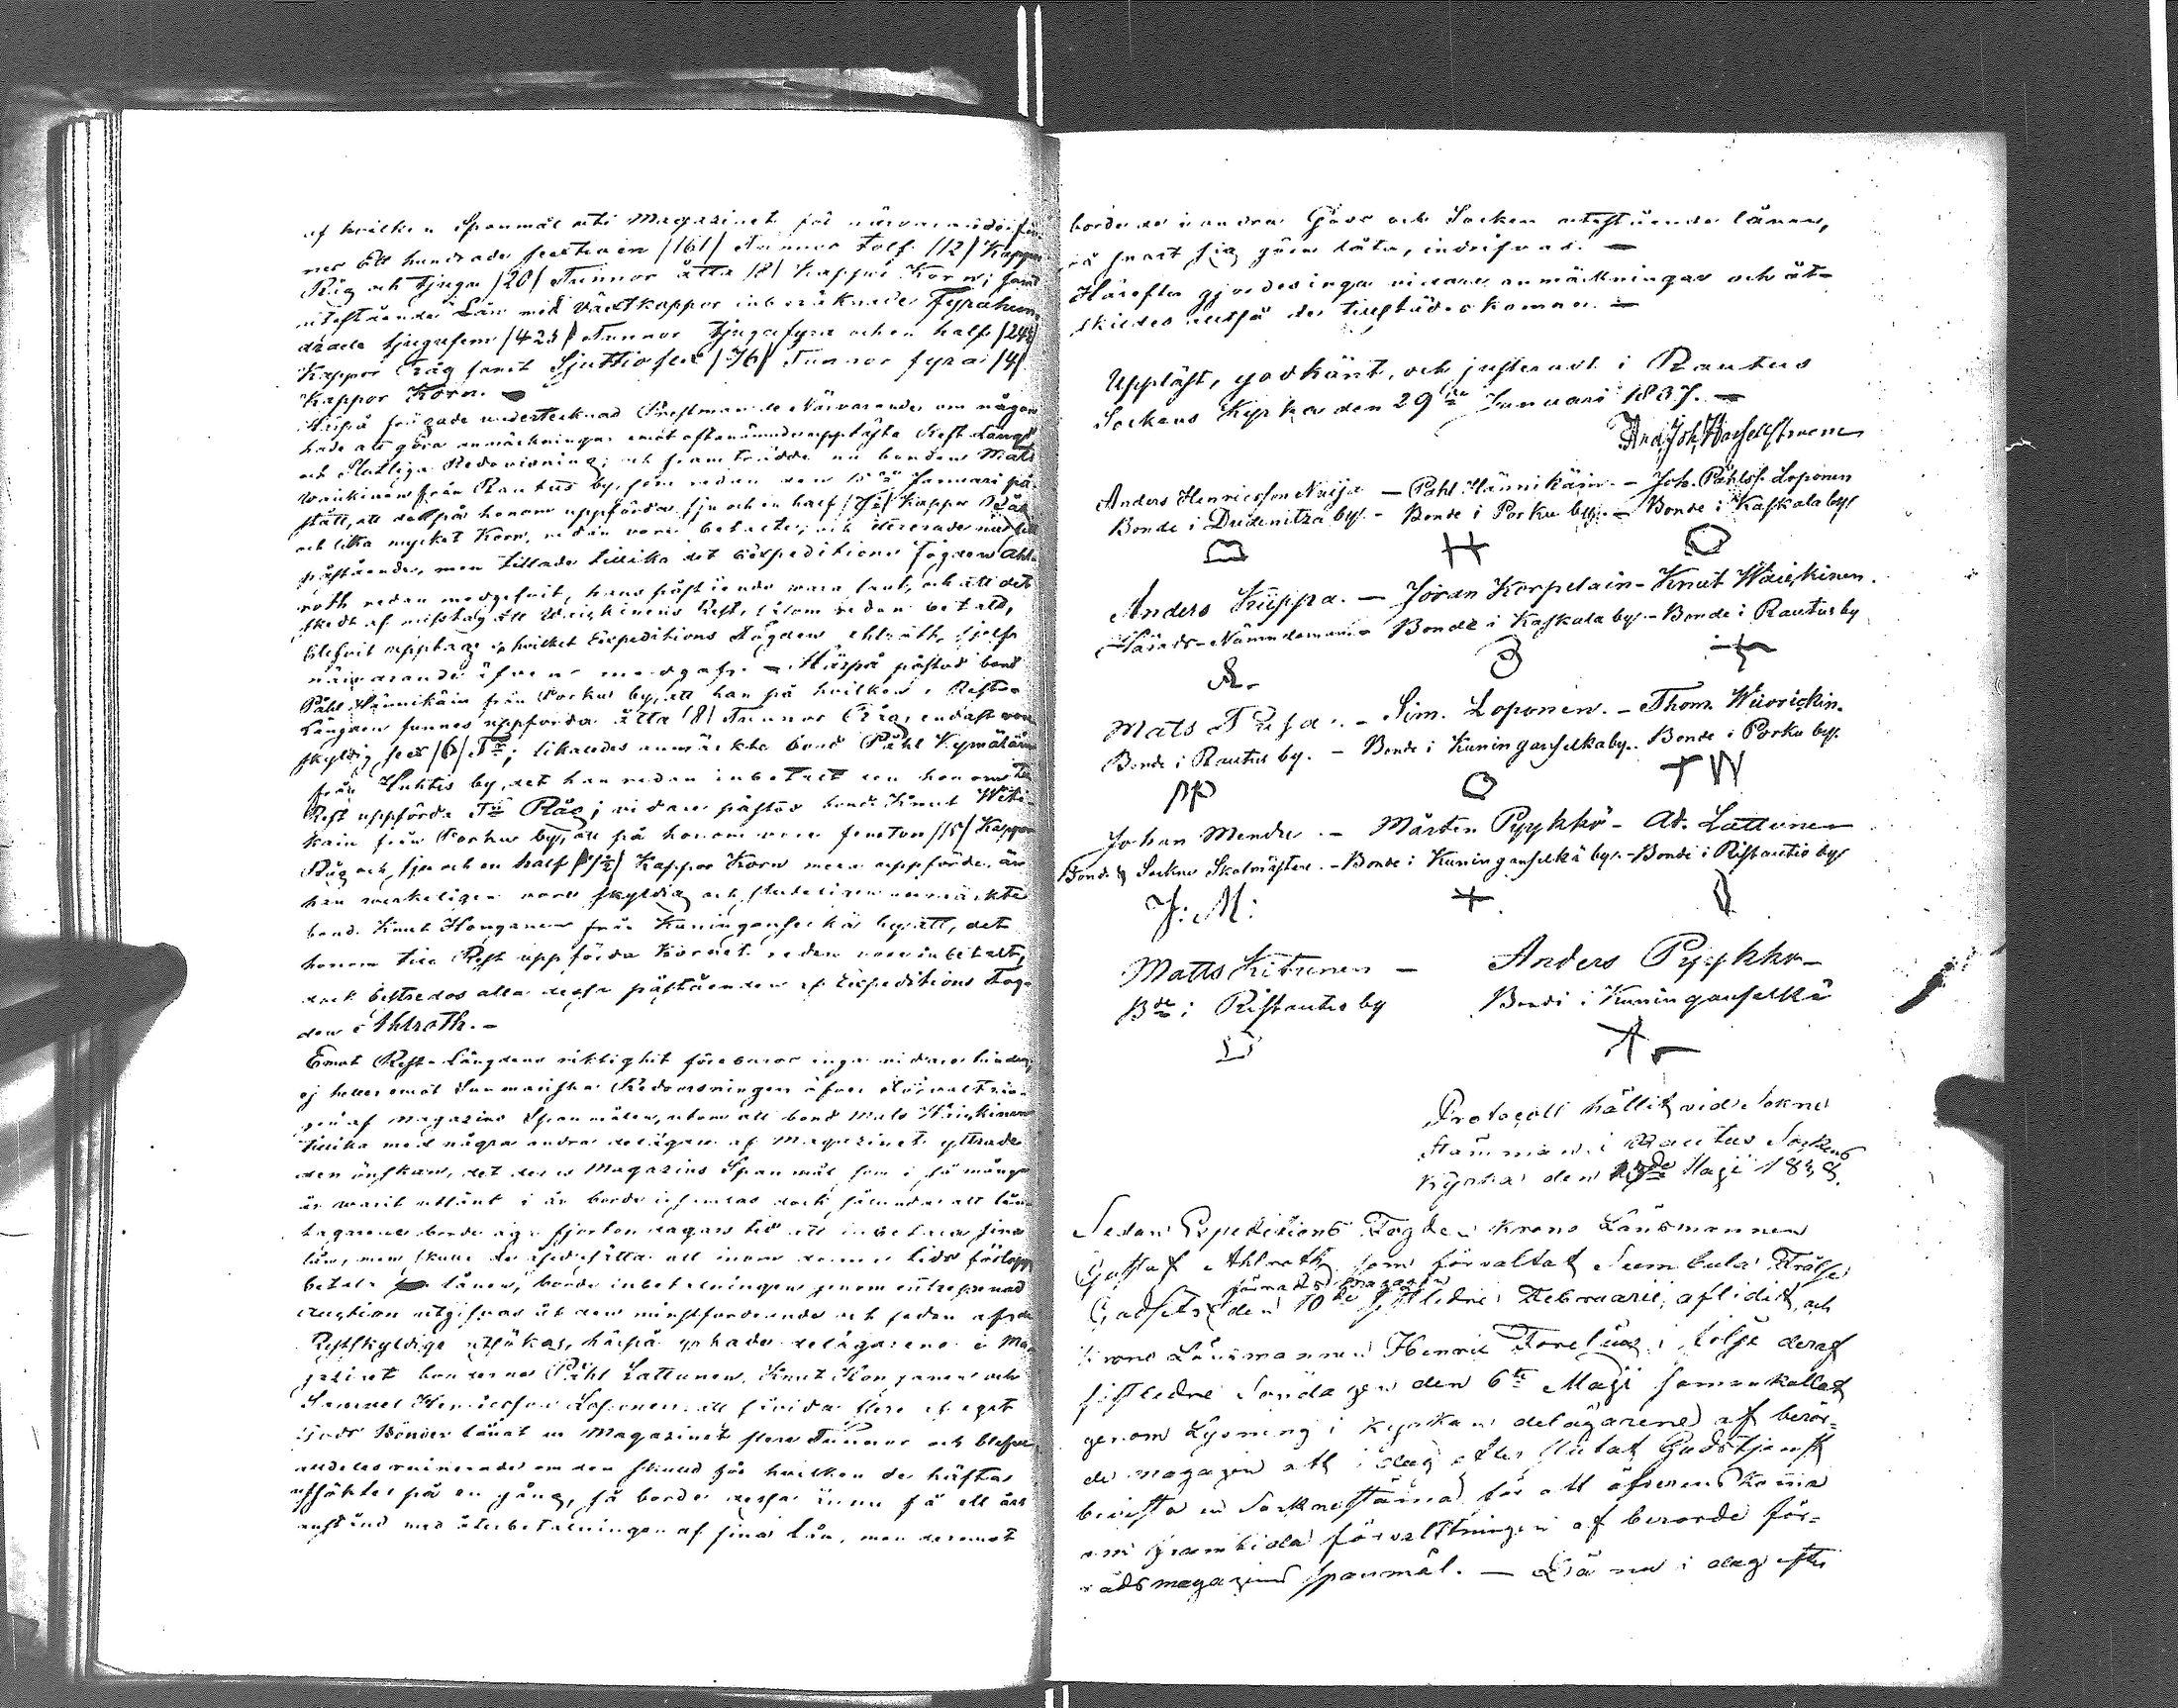 af hvilken Spanmål uti Magazinet för närvarande fin-
nes Ett hundrade sextioen /161/ Tunnor Tolf /12/ Kappor
Råg och tjugu /20/ Tunnor åtta /8/ Kappor Korn; samt
utestående Lån med växtkappor inberäknade Fyrahun-
drade tjugufem /425/ Tunnor tjugufyra och en half /24½/
Kappor Råg samt Sjuttiosex /76/ Tunnor fyra /4/
Kappor Korn. —
Härpå frågade undertecknad Prestman de Närvarande om någon
hade att göra anmärkningar emot oftanämnde uppläste Rest Längd
och Slutliga Redovisning; och framträdde nu bonden Mats
Waiskinen från Rautus by, som redan den Januari på-
stått, att de på honom uppförda sju och en half /7½/ Kappor Råg
och lika mycket Korn, redan voro betalte, och
påstående, men tillade tillika det Expeditions Fogden Ahl-
roth redan medgifvit, hans påstående vara sant, och att det
skedt af misstag att Waiskinens Rest, såsom redan betald,
blifvit upptagen, hvilket Expeditions Fogden Ahlroth sjelf
närvarande äfven medgaf. — Härpå påstod bond
Påhl Hännikäin från Porku by, att han på hvilken i Rest-
Längden funnes uppförda åtta /8/ Tunnor Råg, endast vore
skyldig sex /6/ Tr; likaledes anmärkte bond Påhl Kymäläin
från Huhtis by, det han redan inbetalt den honom till
Rest uppförda Tn Råg; vidare påstod bond. Knut Wäkä-
käin från Porku by, att på honom voro femton /15/ Kappor
Råg och sju och en half /7½/ Kappor Korn mera uppförde, än
han verkeligen vore skyldig och slutligen anmärkte
bond. Knut Honganen från Kuninganselkä by att, det
honom till Rest uppförda Kornet redan vore inbetalt,
dock bestredos alla dessa påståenden af Expeditions Fog-
den Ahlroth. —
Emot Rest-Längdens riktighet förebaros inga vidare hinder,
ej heller emot Summariska Redovisningen öfver förvaltnin-
gen af Magazins Spanmålen, utom att bond Mats Waiskinen
tillika med några andra delägare af Magazinet yttrade
den önskan, det denna Magazins Spanmål som i så många
år varit utlånt i år borde insamlas dock sålunda att lån-
tagarne borde äga fjorton dagars tid att inbetala sina
lån, men skulle de åsidosätta att inom denna tids förlopp
betala lånen, borde inbetalningen genom entreprenad
auction utgifvas åt den minstfordrande och sedan af de
Restskyldige utsökas, härpå yrkade delägarena i Ma-
gazinet bönderne Påhl Lattunen, Knut Honganen och
Samuel Henricsson Loponen, att
Gods Bönder lånat ur Magazinet flere Tunnor och blefve
alldeles ruinerade om den skuld för hvilken de häfta
utsöktes på en gång, så borde dessa ännu få ett års
anstånd med återbetalningen af sina Lån, men deremot
borde de i andra Gods och Socken utestående lånen,
så snart sig göra låter, indrifvas. —
Härefter gjordes inga vidare anmärkningar och åt-
skildes altså de tillstädeskomna. —
Uppläst, godkänt, och justeradt i Rautus
Sockens Kyrka den 29de Januari 1837. —
And. Joh. Hasselstroem
Anders Henricsson Naija — Påhl Hännikäin — Joh. Påhlss. Loponen
Bonde i Dudenitza by. — Bonde i Porku by. — Bonde i Kaskala by
H
Anders Kiippa. — Jöran Korpelain — Knut Waiskinen.
Härads-Nämndeman — Bonde i Kaskala by — Bonde i Rautus by
Mats — Sim. Loponen. — Thom. Wuorickin.
Bonde i Rautus by. — Bonde i Kuninganselkä by. Bonde i Porku by.
TW
Johan Mendu. — Mårten Pyykkö — Ad. Lattunen
Bonde & Sockne Skolmästare. — Bonde i Kuninganselkä by. — Bonde i Ristautio by
J: M:
Matts Kitunen — Anders Pyykkö —
Bde i Ristautio by Bonde i Kuninganselkä
Protocoll hållit vid Sockne
Stämman i Rautus Sockens
Kyrka den Maji 1838.
Sedan Expeditions Fogden Krono Länsmannen
Gustaf Ahlroth som förvaltat Sumbula Frälse
förråds magazin
Godsets den 10de sistledne Februarii, aflidit, och
Krono Länsmannen Henric Forelius i följe deraf
sistledne Söndagen den 6te Maji sammankallat
genom Lysning i Kyrkan delägarene af berör-
de magazin att i dag efter slutat Gudstjenst
bevista en Sockne Stäma för att öfverenskoma
om framtida förvaltningen af berörde för-
rådsmagazins spanmål. — Då nu i dag efter